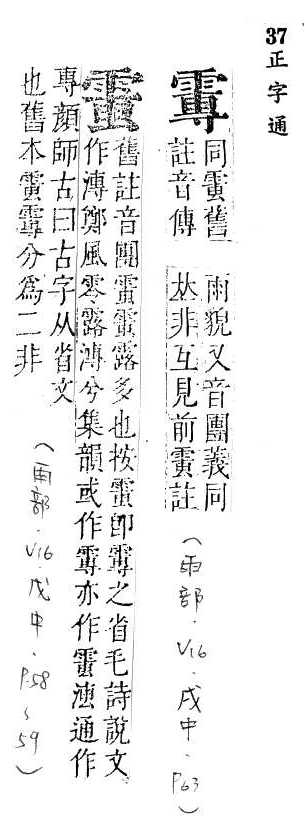 37 正字通
同舊
註音傳
雨貌又音團義同
𠀤非互見前註
(雨部·V16·戌中·P63)
舊註音團露多也按即之省毛詩說文
作漙鄭風零露漙兮集韻或作亦作通作
專顏師古曰古字从省文
也舊本分爲二非
(雨部·V16·戌中·P.58~59)